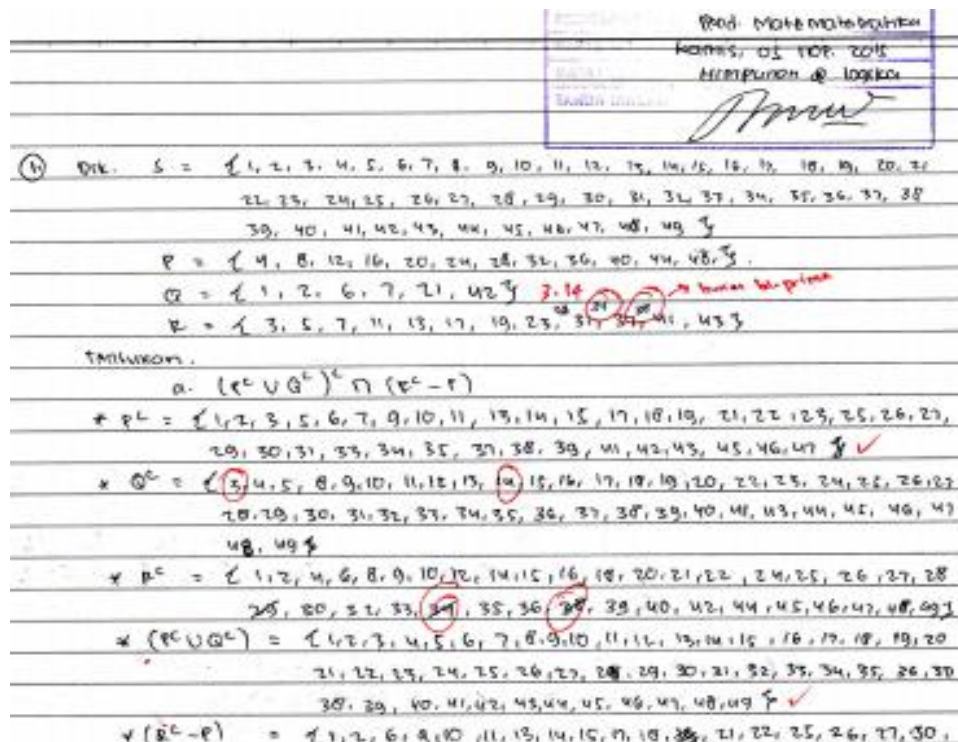 Kamis, 05 NOP. 2015
Himpunan & logika
④ DIK. S = { 1, 2, 3, 4, 5, 6, 7, 8, 9, 10, 11, 12, 13, 14, 15, 16, 17, 18, 19, 20, 21
22, 23, 24, 25, 26, 27, 28, 29, 30, 31, 32, 33, 34, 35, 36, 37, 38
39, 40, 41, 42, 43, 44, 45, 46, 47, 48, 49 }
P = { 4, 8, 12, 16, 20, 24, 28, 32, 36, 40, 44, 48, }.
Q = { 1, 2, 6, 7, 21, 42 } 3.14 → bukan bil. prima
R = { 3, 5, 7, 11, 13, 17, 19, 23, 31, 37, 41, 43 }
Tentukan.
a. (P^c ∪ Q^c)^c ∩ (R^c - P)
* P^c = { 1, 2, 3, 5, 6, 7, 9, 10, 11, 13, 14, 15, 17, 18, 19, 21, 22, 23, 25, 26, 27,
29, 30, 31, 33, 34, 35, 37, 38, 39, 41, 42, 43, 45, 46, 47 } ✓
* Q^c = { 3, 4, 5, 8, 9, 10, 11, 12, 13, 14, 15, 16, 17, 18, 19, 20, 22, 23, 24, 25, 26, 27
28, 29, 30, 31, 32, 33, 34, 35, 36, 37, 38, 39, 40, 41, 43, 44, 45, 46, 47
48, 49 }
* R^c = { 1, 2, 4, 6, 8, 9, 10, 12, 14, 15, 16, 18, 20, 21, 22, 24, 25, 26, 27, 28
30, 32, 33, 35, 36, 39, 40, 42, 44, 45, 46, 47, 48, 49 }
* (P^c ∪ Q^c) = { 1, 2, 3, 4, 5, 6, 7, 8, 9, 10, 11, 12, 13, 14, 15, 16, 17, 18, 19, 20
21, 22, 23, 24, 25, 26, 27, 28, 29, 30, 31, 32, 33, 34, 35, 36, 37
38, 39, 40, 41, 42, 43, 44, 45, 46, 47, 48, 49 } ✓
* (R^c - P) = { 1, 2, 6, 9, 10, 11, 13, 14, 15, 17, 18, 21, 22, 25, 26, 27, 30,